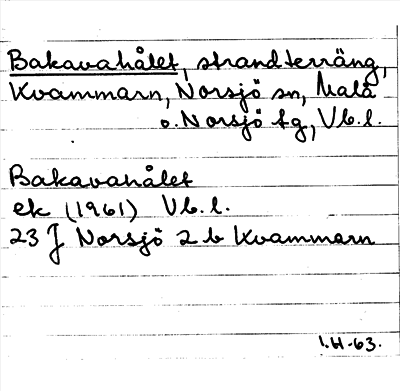 Bakavahålet, strandterräng,
Kvammarn, Norsjö sn, Malå
o. Norsjö tg, Vb. l.
Bakavahålet
ek (1961) Vb. l.
23 J Norsjö 2 b Kvammarn
I.H-63.